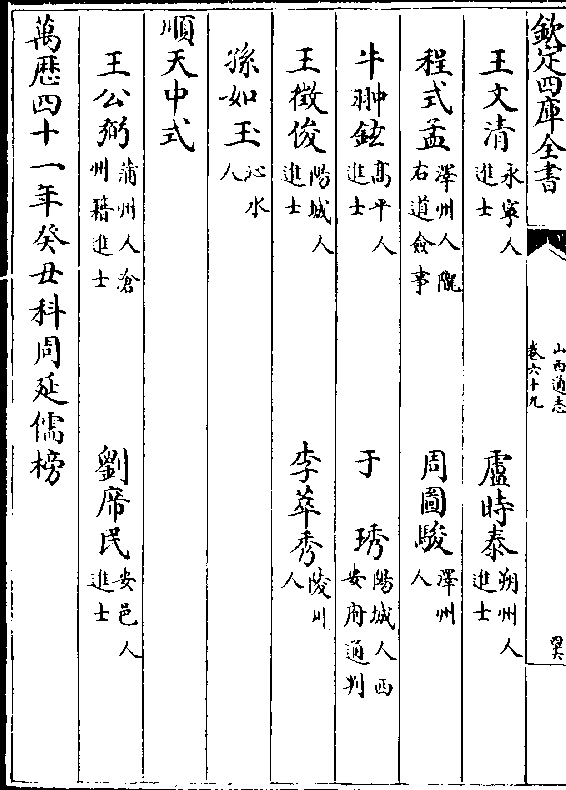 欽定四庫全書
山西通志
卷六十九
王文清永寧人進士　盧時泰朔州人進士
程式孟澤州人隴右道僉事　周圖駿澤州人
牛翀鉉高平人進士　于琇陽城人西安府通判
王徵俊陽城人進士　李萃秀陵川人
孫如玉沁水人
順天中式
王公弼蒲州人滄州籍進士　劉席民安邑人進士
萬歷四十一年癸丑科周延儒榜